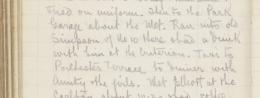 tried on uniform. Then to the Park
Garage about the Mot. Ran into old
Simpson of the 10 Hers & had a drink
with him at the Criterion. Taxi to
Porchester Terrace to dinner with
Aunty & the girls. Met Elliott at the
Carlton about